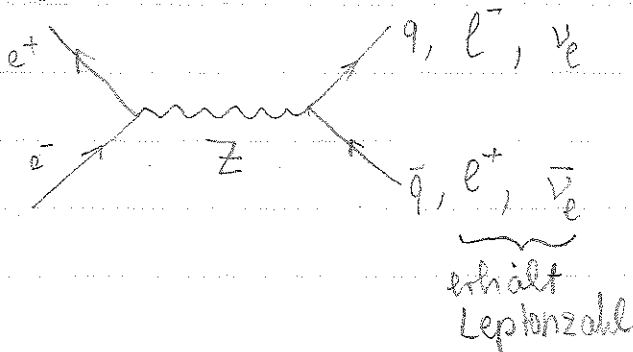 e⁺
q, ℓ⁻, ν_ℓ
e⁻
Z
q̄, ℓ⁺, ν̄_ℓ
erhält
Leptonzahl